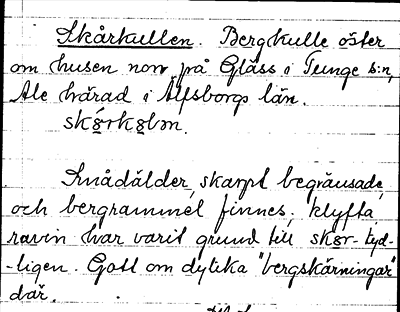 Skårkullen. Bergkulle öster
om husen norr på Gläss i Tunge s:n,
Ale härad i Älfsborgs län.
Smådälder, skarpt begränsade,
och bergrammel finnes; klyfta
ravin har varit grund till skår- tyd-
-ligen. Gott om dylika "bergskärningar"
där.